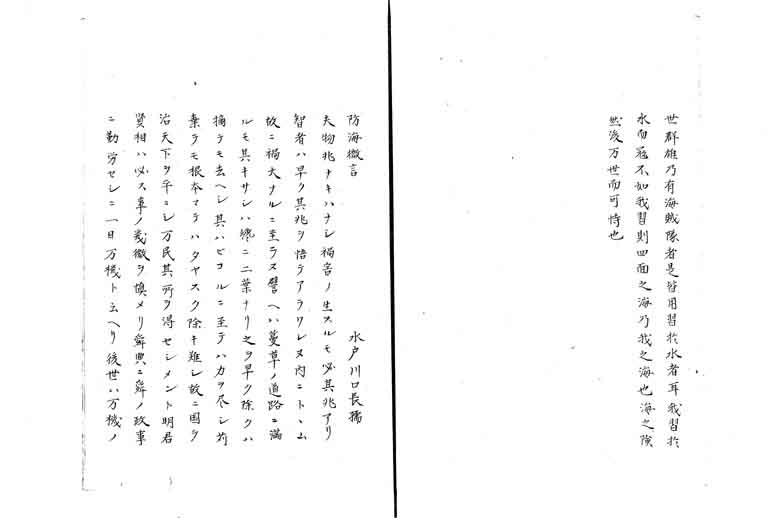 世群雄乃有海賊隊者是皆用習於水者耳我習於
水而寇不如我習則四面之海乃我之海也海之険
然後万世而可恃也
防海微言
水戸川口長孺
夫物兆ナキハナシ禍害ノ生スルモ必其兆アリ
智者ハ早ク其兆ヲ悟テアラワレヌ内ニトヽム
故ニ禍大ナルニ至ラス譬ヘハ蔓草ノ道路ニ満
ルモ其キサシハ纔ニ二葉ナリ之ヲ早ク除クハ
摘テモ去ヘシ其ハビコルニ至テハ力ヲ尽シ芟
棄テモ根本マテハタヤスク除キ難シ故ニ国ヲ
治天下ヲ平ニシ万民其所ヲ得セシメント明君
賢相ハ必ス事ノ幾微ヲ慎メリ舜典ニ舜ノ政事
ニ勤労セシニ一日万機ト云ヘリ後世ハ万機ノ